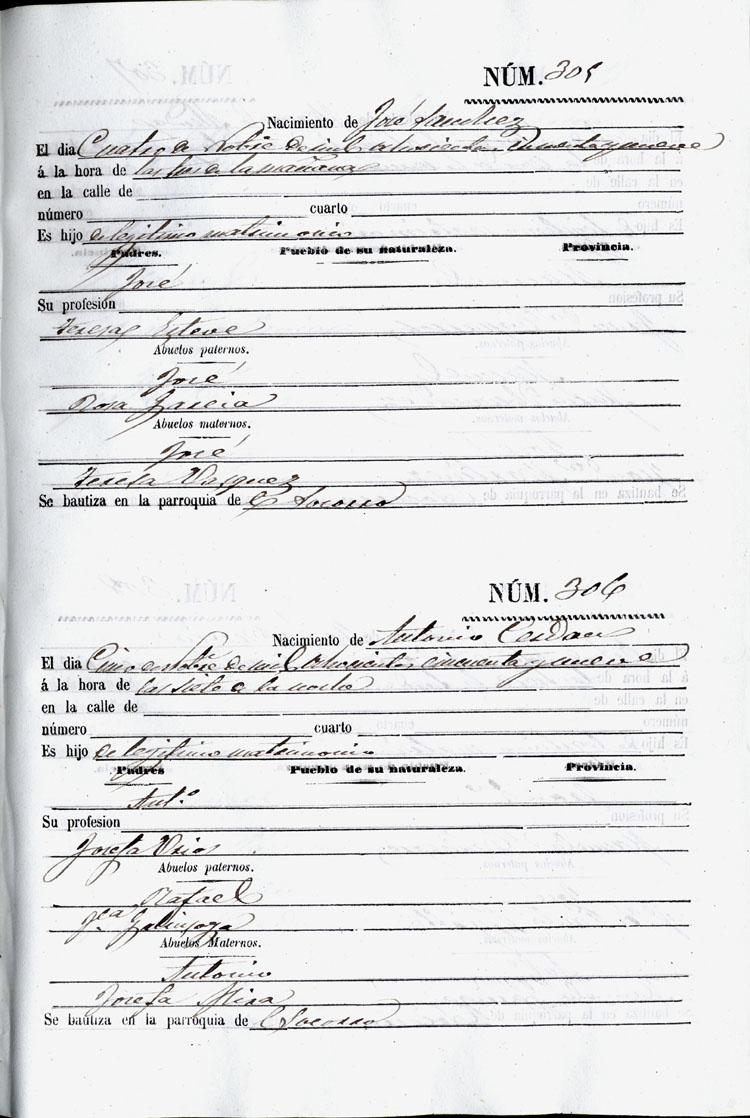 NÚM. 305
Nacimiento de José Sanchez
El dia Cuatro de Nobre de mil ochocientos cincuenta y nueve
á la hora de las tres de la mañana
en la calle de
número cuarto
Es hijo de legitimo matrimonio
Padres. Pueblo de su naturaleza. Provincia.
José
Su profesión
Teresa Esteve
Abuelos paternos.
José
Rosa Garcia
Abuelos maternos.
José
Teresa Vasquez
Se bautiza en la parroquia de El Socorro
NÚM. 306
Nacimiento de Antonio Cerdan
El dia Cinco de Nobre de mil ochocientos cincuenta y nueve
á la hora de las siete de la noche
en la calle de
número cuarto
Es hijo de legitimo matrimonio
Padres Pueblo de su naturaleza. Provincia.
Ant.º
Su profesion
Josefa Urios
Abuelos paternos.
Rafael
Galinsoga
Abuelos Maternos.
Antonio
Josefa Mira
Se bautiza en la parroquia de El Socorro